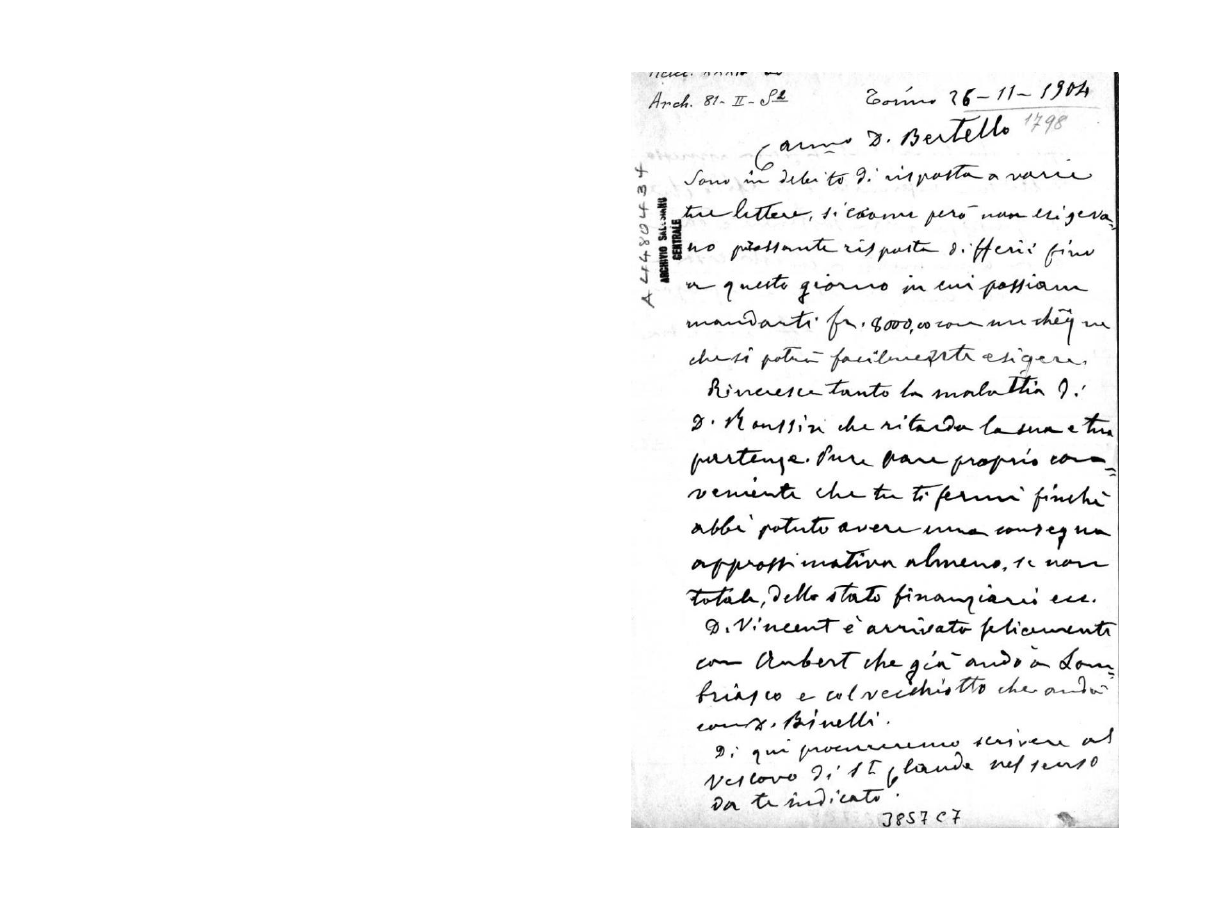 Arch. 81- II - S2
Torino 26-11-1904
1798
Carmo D. Bertello
Sono in debito di risposta a varie
tue lettere, siccome però non esigeva=
no pressante risposta differii fino
a questo giorno in cui possiam
mandarti fr. 8000,00 con un chêque
che si potrà facilmente esigere.
Rincresce tanto la malattia di
D. Roussin che ritarda la sua e tua
partenza. Pure pare proprio con=
veniente che tu ti fermi finchè
abbi potuto avere una consegna
approssimativa almeno, se non
totale, dello stato finanziario ecc.
D. Vincent è arrivato felicemente
con Aubert che già andò a Lom=
briasco e col vecchiotto che andò
con D. Binelli.
Di qui procureremo scrivere al
Vescovo di St Claude nel senso
da te indicato.
3857 C7
A4480434
ARCHIVIO SALESIANO
CENTRALE